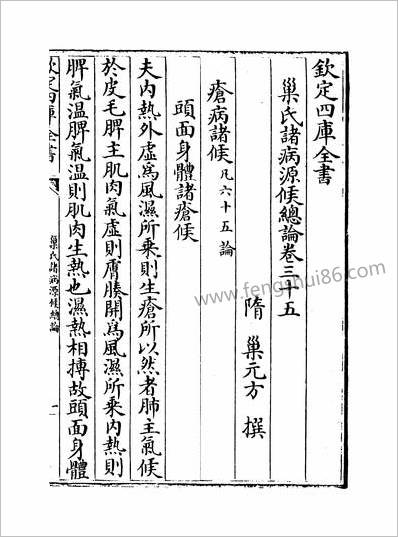 欽定四庫全書
巢氏諸病源候總論卷三十五
隋 巢元方 撰
瘡病諸候凡六十五論
頭面身體諸瘡候
夫内熱外虛為風濕所乘則生瘡所以然者肺主氣候
於皮毛脾主肌肉氣虛則膚腠開為風濕所乘内熱則
脾氣温脾氣温則肌肉生熱也濕熱相搏故頭面身體
欽定四庫全書
巢氏諸病源候總論
一
www.fengshui86.com